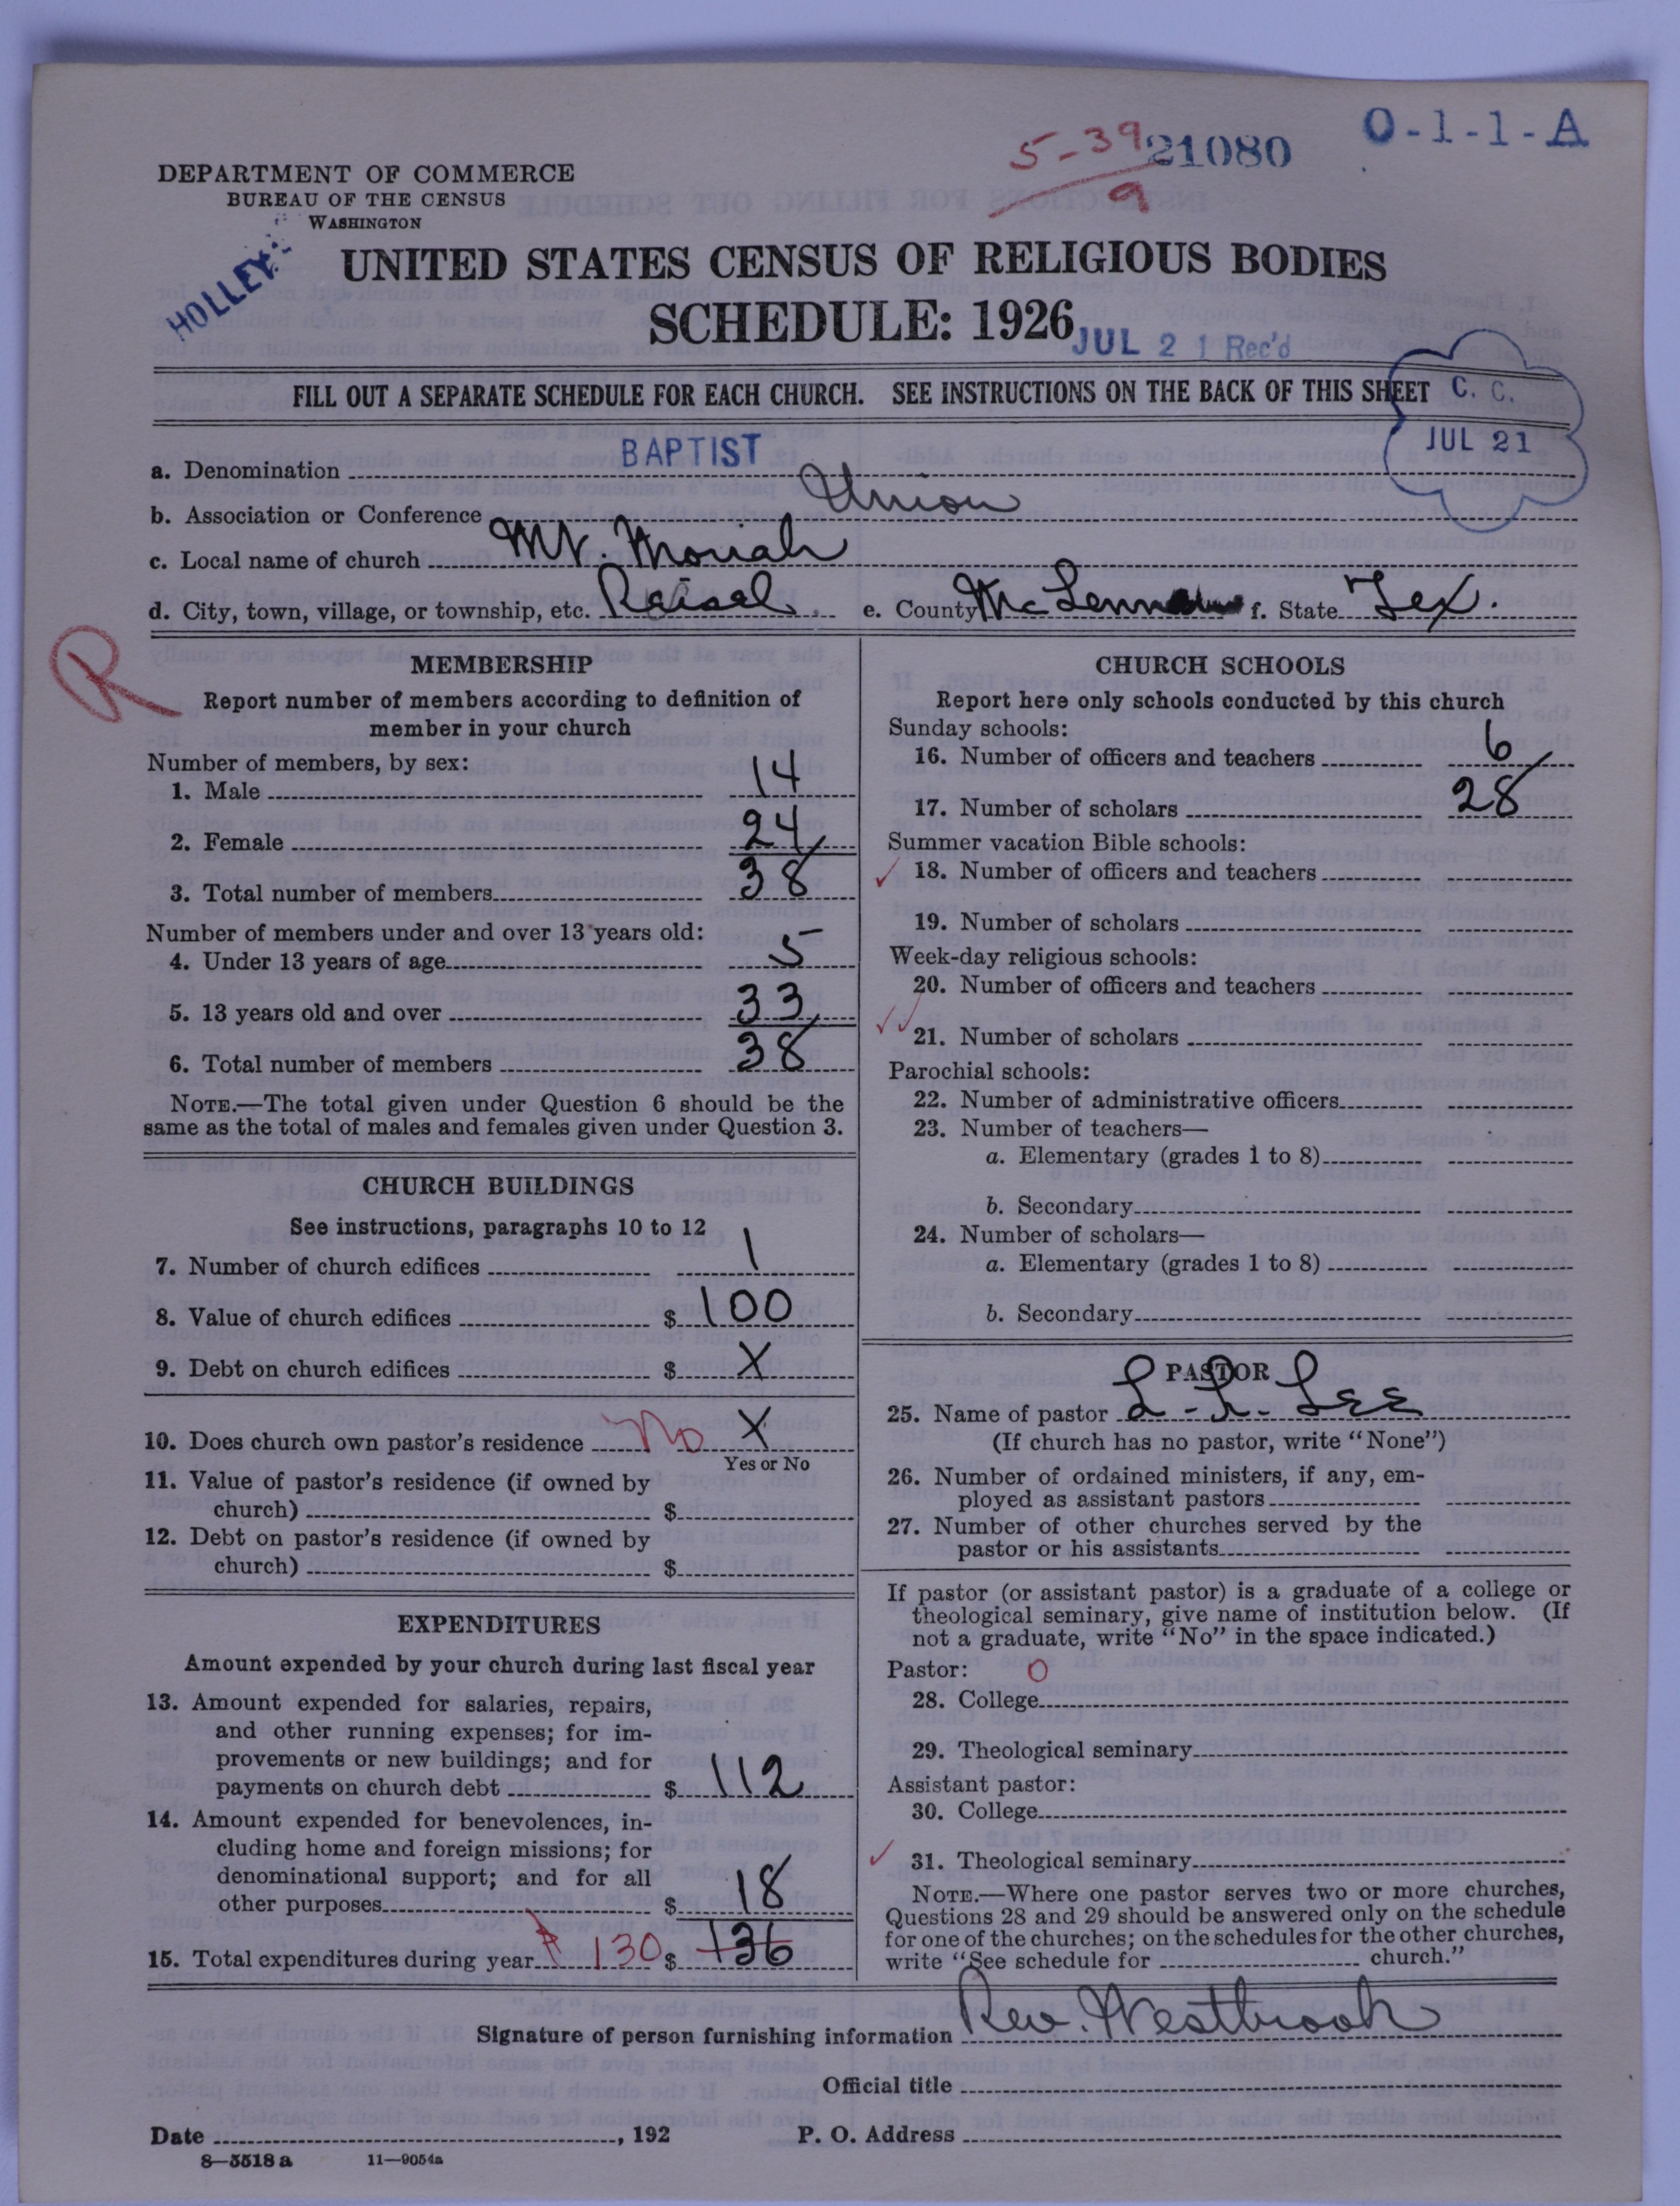 O-1-1-A
5-39
9
21080
DEPARTMENT OF COMMERCE
BUREAU OF THE CENSUS
WASHINGTON
HOLLEY
UNITED STATES CENSUS OF RELIGIOUS BODIES
SCHEDULE: 1926
JUL 21 Rec'd
FILL OUT A SEPARATE SCHEDULE FOR EACH CHURCH. SEE INSTRUCTIONS ON THE BACK OF THIS SHEET
C. C.
JUL 21
a. Denomination BAPTIST
b. Association or Conference Union
c. Local name of church Mt. Moriah
d. City, town, village, or township, etc. Reisel e. County McLennan f. State Tex.
R
MEMBERSHIP
Report number of members according to definition of
member in your church
Number of members, by sex:
1. Male 14
2. Female 24
3. Total number of members 38
Number of members under and over 13 years old:
4. Under 13 years of age 5
5. 13 years old and over 33
6. Total number of members 38
NOTE.—The total given under Question 6 should be the
same as the total of males and females given under Question 3.
CHURCH BUILDINGS
See instructions, paragraphs 10 to 12
7. Number of church edifices 1
8. Value of church edifices $ 100
9. Debt on church edifices $ X
10. Does church own pastor's residence No X
Yes or No
11. Value of pastor's residence (if owned by
church) $
12. Debt on pastor's residence (if owned by
church) $
EXPENDITURES
Amount expended by your church during last fiscal year
13. Amount expended for salaries, repairs,
and other running expenses; for im-
provements or new buildings; and for
payments on church debt $ 112
14. Amount expended for benevolences, in-
cluding home and foreign missions; for
denominational support; and for all
other purposes $ 18
15. Total expenditures during year 130 $ 136
CHURCH SCHOOLS
Report here only schools conducted by this church
Sunday schools:
16. Number of officers and teachers 6
17. Number of scholars 28
Summer vacation Bible schools:
18. Number of officers and teachers
19. Number of scholars
Week-day religious schools:
20. Number of officers and teachers
21. Number of scholars
Parochial schools:
22. Number of administrative officers
23. Number of teachers—
a. Elementary (grades 1 to 8)
b. Secondary
24. Number of scholars—
a. Elementary (grades 1 to 8)
b. Secondary
PASTOR
25. Name of pastor L. R. Lee
(If church has no pastor, write "None")
26. Number of ordained ministers, if any, em-
ployed as assistant pastors
27. Number of other churches served by the
pastor or his assistants
If pastor (or assistant pastor) is a graduate of a college or
theological seminary, give name of institution below. (If
not a graduate, write "No" in the space indicated.)
Pastor: 0
28. College
29. Theological seminary
Assistant pastor:
30. College
31. Theological seminary
NOTE.—Where one pastor serves two or more churches,
Questions 28 and 29 should be answered only on the schedule
for one of the churches; on the schedules for the other churches,
write "See schedule for church."
Signature of person furnishing information Rev. Westbrook
Official title
Date , 192 P. O. Address
8—5518 a 11—9054a